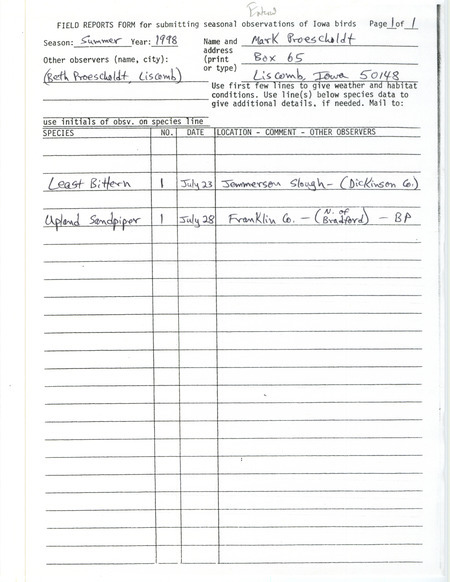 Entered
FIELD REPORTS FORM for submitting seasonal observations of Iowa birds Page 1 of 1
Season: Summer Year: 1998 Name and Mark Proescholdt
address
Other observers (name, city): (print Box 65
or type)
(Beth Proescholdt, Liscomb) Liscomb, Iowa 50148
Use first few lines to give weather and habitat
conditions. Use line(s) below species data to
give additional details, if needed. Mail to:
use initials of obsv. on species line
SPECIES NO. DATE LOCATION - COMMENT - OTHER OBSERVERS
Least Bittern 1 July 23 Jemmerson Slough - (Dickinson Co.)
Upland Sandpiper 1 July 28 Franklin Co. - (N. of Bradford) - BP